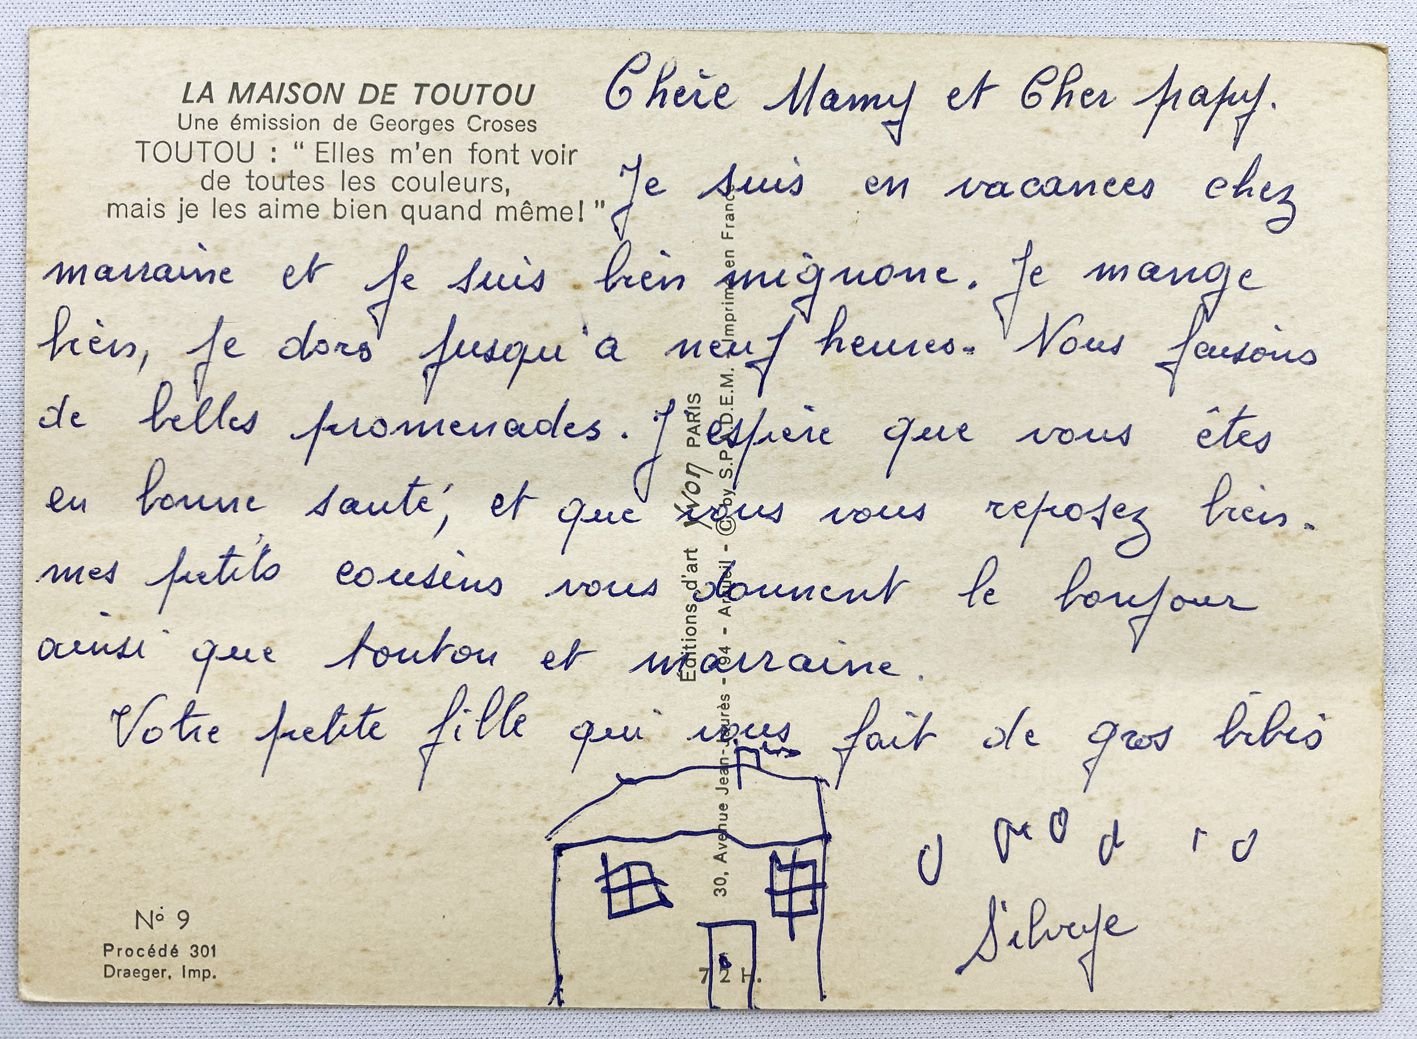 LA MAISON DE TOUTOU
Une émission de Georges Croses
TOUTOU : " Elles m'en font voir
de toutes les couleurs,
mais je les aime bien quand même! "
Chère Mamy et Cher papy.
Je suis en vacances chez
marraine et je suis bien mignone. Je mange
bien, je dors jusqu'à neuf heures. Nous faisons
de belles promenades. J'espère que vous êtes
en bonne santé, et que vous vous reposez bien.
mes petits cousins vous donnent le bonjour
ainsi que tonton et marraine.
Votre petite fille qui vous fait de gros bibis
Editions d'art Yvon PARIS
30, Avenue Jean-Jaurès - 94 - Arcueil - © by S.P.A.D.E.M. Imprimé en France
N° 9
Procédé 301
Draeger, Imp.
72 H.